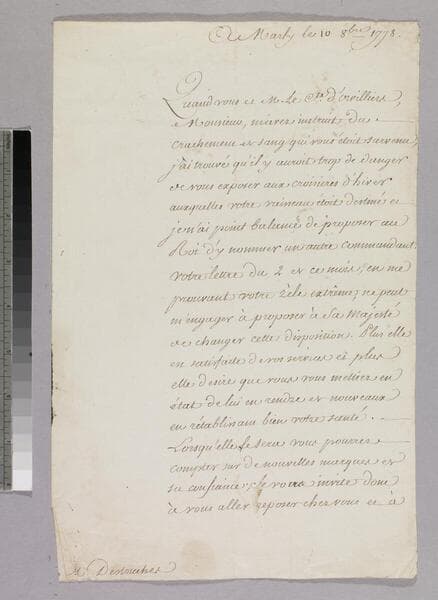 A Marly le 10 8bre 1778.
Quand vous et M. Le Cte d'orvilliers,
Monsieur, m'avez instruit du
crachement de sang qui vous étoit survenu,
j'ai trouvé qu'il y auroit trop de danger
de vous exposer aux croisières d'hiver
auxquelles votre vaisseau étoit destiné et
je n'ai point balancé de proposer au
Roi d'y nommer un autre commandant.
votre lettre du 2 de ce mois, en me
prouvant votre zèle extrême, ne peut
m'engager à proposer à Sa Majesté
de changer cette disposition. Plus elle
est satisfaite de vos services et plus
elle désire que vous vous mettiez en
état de lui en rendre de nouveaux
en rétablissant bien votre santé.
Lorsqu'elle le sera vous pourrez
compter sur de nouvelles marques de
sa confiance; je vous invite donc
à vous aller reposer chez vous et à
M. Destouches